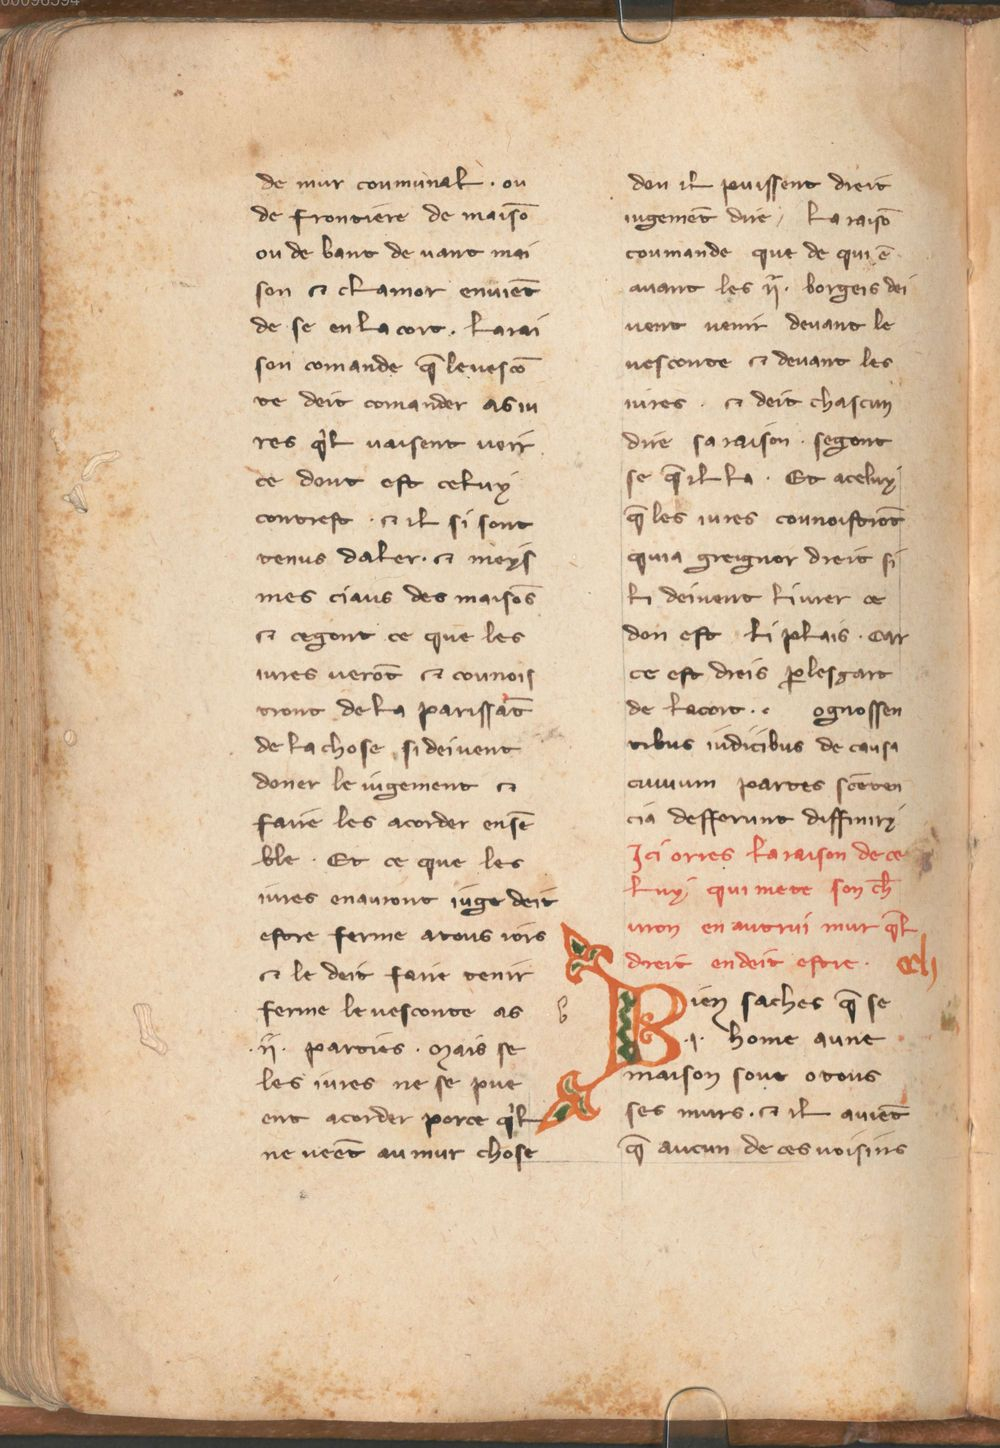 de mur coumunal · ou
de frontiere de maisō
ou de bant de uant mai
son ⁊ clamor enuiēt
de se en la cort · la rai
son comande q̄ le uesco
te deit comander as iu
res q̉l uaisent ueir
ce dont est celuy
contrest · ⁊ il si sont
tenus daler · ⁊ meys
mes ciaus des maisōs
⁊ cegont ce que les
iures uerōt ⁊ counois
tront de la parissāt
de la chose si deiuent
doner le iugement ⁊
faire les acorder ensē
ble · Et ce que les
iures enauront iuge deit
estre ferme atous iors
⁊ le deit faire tenir
ferme le uesconte as
·ij· parties · Mais se
les iures ne se pue
ent acorder porce q̉l
ne ueēt au mur chose
don il puissent dreit
iugemēt dire / La raisō
coumande que de qui ē
auant les ij · borgeis dei
uent uenir deuant le
uesconte ⁊ deuant les
iures · ⁊ deit chascun
dire sa raison · segont
se q̄ il la · Et aceluy
q̄ les iures counoistrōt
qui a greignor dreit si
li deiuent liurer ce
don est li plais · Car
ce est dreis ꝑ lesgart
de la cort · c ognossen
tibus iudicibus de causa
ciuium partes scēten
cia defferunt diffiniry
Ici orres la raison de ce
luy qui mete son ch̄
uron en autrui mur q̄l
dreit en deit estre ·
b
Bien saches q̄ se
·i· home aune
maison sont o tous
ses murs · ⁊ il auiēt
q̄ aucun de ces uoisins